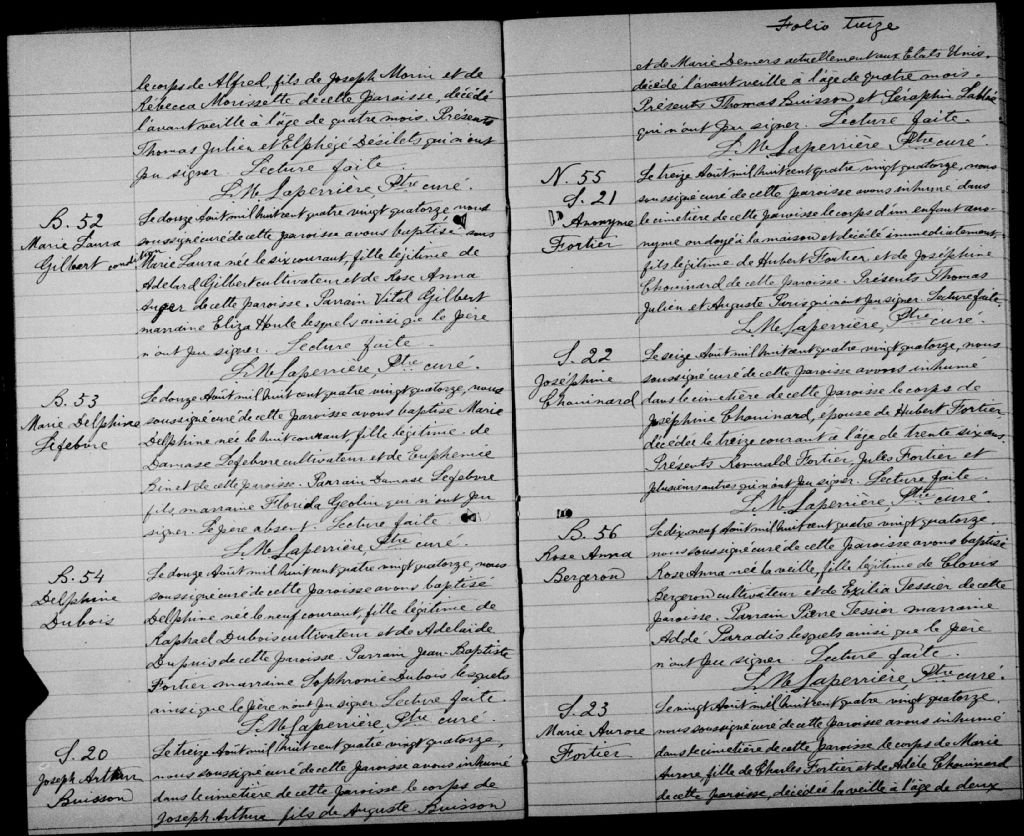 le corps de Alfred, fils de Joseph Morin et de
Rébecca Morissette de cette paroisse, décédé
l'avant veille à l'âge de quatre mois. Présents
Thomas Julien et Elphégé Désilets qui n'ont
pu signer. Lecture faite.
L. M. Laperrière, Ptre curé.
B. 52
Marie Laura
Gilbert
Le douze Août mil huit cent quatre vingt quatorze, nous
soussigné curé de cette paroisse avons baptisé sous
condition Marie Laura née le six courant, fille légitime de
Adelard Gilbert cultivateur et de Rose Anna
Auger de cette paroisse. Parrain Vital Gilbert
marraine Eliza Houle lesquels ainsi que le père
n'ont pu signer. Lecture faite.
L. M. Laperrière, Ptre curé.
B. 53
Marie Delphine
Lefebvre
Le douze Août mil huit cent quatre vingt quatorze, nous
soussigné curé de cette paroisse avons baptisé Marie
Delphine née le huit courant, fille légitime de
Damase Lefebvre cultivateur et de Euphémie
Binet de cette paroisse. Parrain Damase Lefebvre
fils, marraine Florida qui n'ont pu
signer. Le père absent. Lecture faite.
L. M. Laperrière, Ptre curé.
B. 54
Delphine
Dubois
Le douze Août mil huit cent quatre vingt quatorze, nous
soussigné curé de cette paroisse avons baptisé
Delphine née le neuf courant, fille légitime de
Raphael Dubois cultivateur et de Adelaïde
Dupuis de cette paroisse. Parrain Jean-Baptiste
Fortier marraine Sophronie Dubois lesquels
ainsi que le père n'ont pu signer. Lecture faite.
L. M. Laperrière, Ptre curé.
S. 20
Joseph Arthur
Buisson
Le treize Août mil huit cent quatre vingt quatorze,
nous soussigné curé de cette paroisse avons inhumé
dans le cimetière de cette paroisse le corps de
Joseph Arthur fils de Auguste Buisson
Folio treize
et de Marie Demers actuellement aux Etats Unis.
décédé l'avant veille à l'âge de quatre mois.
Présents Thomas Buisson et Séraphin
qui n'ont pu signer. Lecture faite.
L. M. Laperrière, Ptre curé.
N. 55
S. 21
Anonyme
Fortier
Le treize Août mil huit cent quatre vingt quatorze, nous
soussigné curé de cette paroisse avons inhumé dans
le cimetière de cette paroisse le corps d'un enfant ano-
nyme ondoyé à la maison et décédé immédiatement,
fils légitime de Hubert Fortier et de Joséphine
Chouinard de cette paroisse. Présents Thomas
Julien et Auguste Paris qui n'ont pu signer. Lecture faite.
L. M. Laperrière, Ptre curé.
S. 22
Joséphine
Chouinard
Le seize Août mil huit cent quatre vingt quatorze, nous
soussigné curé de cette paroisse avons inhumé
dans le cimetière de cette paroisse le corps de
Joséphine Chouinard, épouse de Hubert Fortier,
décédée le treize courant à l'âge de trente six ans.
Présents Romuald Fortier, Jules Fortier et
plusieurs autres qui n'ont pu signer. Lecture faite.
L. M. Laperrière, Ptre curé.
B. 56
Rose Anna
Bergeron
Le dix-neuf Août mil huit cent quatre vingt quatorze.
nous soussigné curé de cette paroisse avons baptisé
Rose Anna née la veille, fille légitime de Clovis
Bergeron cultivateur et de Exilia Tessier de cette
paroisse. Parrain Pierre Tessier marraine
Adde Paradis lesquels ainsi que le père
n'ont pu signer. Lecture faite.
L. M. Laperrière, Ptre curé.
S. 23
Marie Aurore
Fortier
Le vingt Août mil huit cent quatre vingt quatorze.
nous soussigné curé de cette paroisse avons inhumé
dans le cimetière de cette paroisse le corps de Marie
Aurore, fille de Charles Fortier et de Adele Chouinard
de cette paroisse, décédée la veille à l'âge de deux